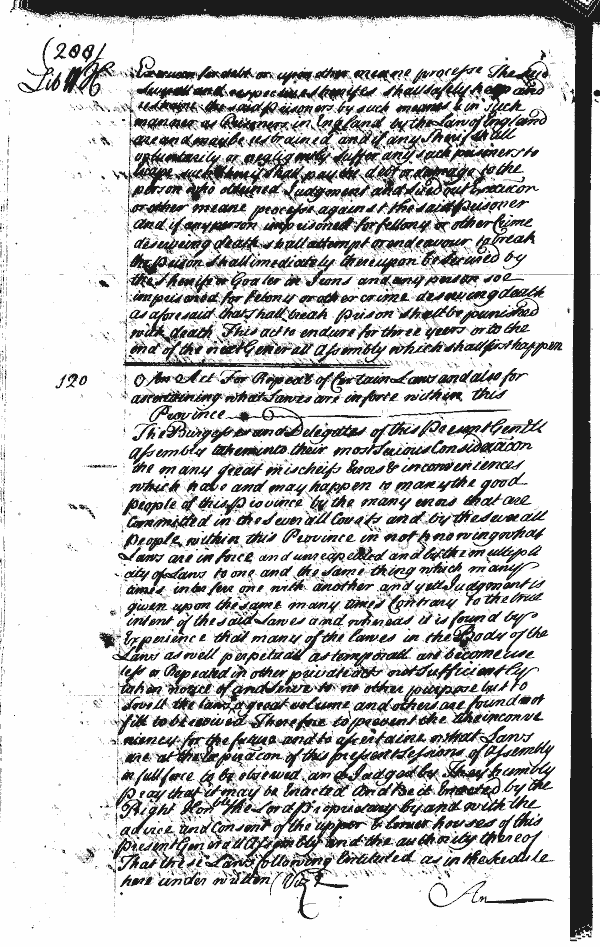 (200)
Lib WH
Execucon for debt or upon other meane processe The said
severall and respective sheriffs shall safely keep and
restraine the said prisoners by such means & in such
manner as Prisoners in England by the Law of England
are and may be restrained and if any Sheriff shall
voluntarily or negligently suffer any such prisoners to
Escape such sheriff shall pay the debt or damage to the
person who obtained Judgment and sued out Execucon
or other meane processe against the said prisoner
And if any person imprisoned for fellony or other Crime
deserveing death shall attempt or endeavour to break
the prison shall imediately thereupon be secured by
the sheriffe or Goaler in Irons and any person soe
imprisoned for Felony or other crime deserving death
as aforesaid that shall break Prison shall be punished
with death This act to endure for three years or to the
end of the next Generall Assembly which shall first happen
120
An Act For Repeal of Certain Laws and also for
ascertaining what Lawes are in force within this
Province
The Burgesses and Delegates of this Present Genll
Assembly taken into their most Serious Consideracon
the many great mischeifs Errors & inconveniences
which have and may happen to many the good
people of this Province by the many errors that are
Committed in the severall Courts and by the severall
People within this Province in not knowing what
Laws are in force and unrepealled and by the multipli
city of Laws to one and the same thing which many
times interfere one with another and yet Judgment is
given upon the same many times Contrary to the true
intent of the said Lawes and whereas it is found by
Experience that many of the lawes in the Body of the
Laws as well perpetuall as temporall are become use
less or Repeated in other private acts not Sufficiently
taken notice of and serve to no other purpose but to
swell the laws a great volume and others are found not
fitt to be revived Therefore to prevent the like inconve
niency for the future and to ascertaine what Laws
are at the expiracon of this present Sessions of Assembly
in full force to be observed and Judged by They humbly
pray that it may be Enacted And Be it Enacted by the
Right Honble the Lord Proprietary by and with the
advice and Consent of the upper & lower houses of this
present Generall Assembly and the authority thereof
That these Laws following Entituled as in the schedule
here under written (Vizt
An